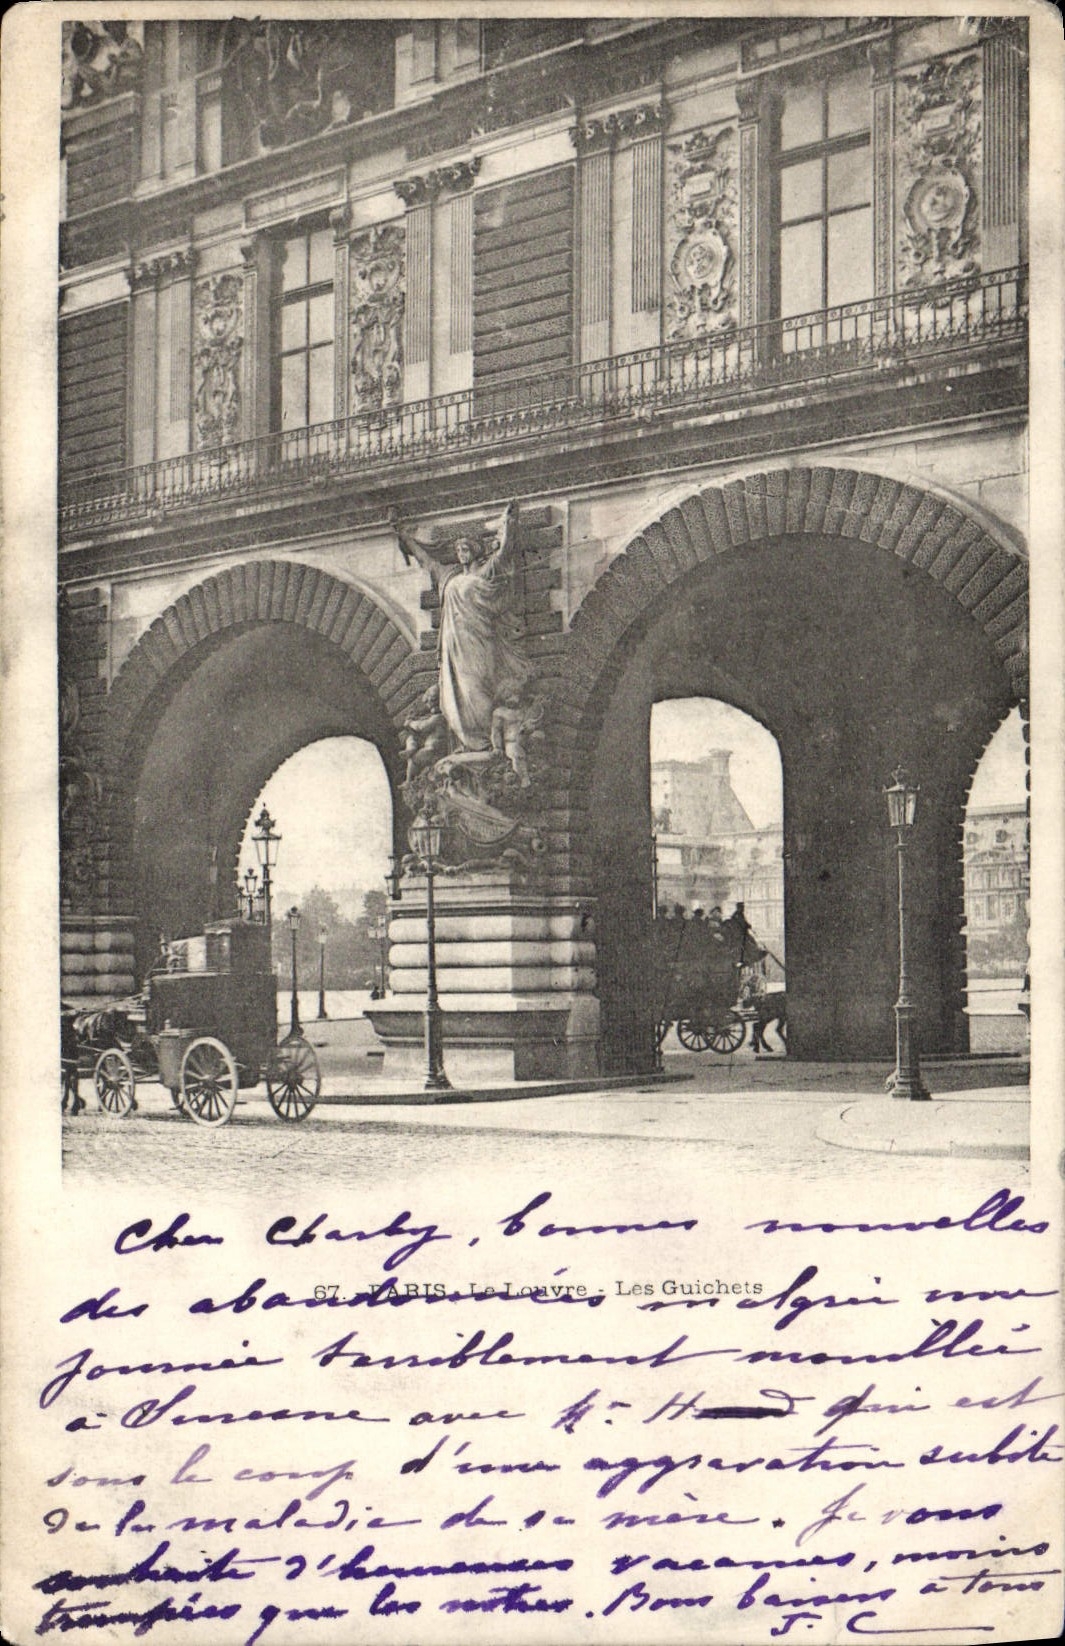 Cher Charly, bonnes nouvelles
67. - PARIS - Le Louvre - Les Guichets
des abandonnés malgré une
journée terriblement mouillée
à Suresne avec Mr H qui est
sous le coup d'une aggravation subite
de la maladie de sa mère. Je vous
souhaite d'heureuses vacances, moins
trempées que les nôtres. Bons baisers à tous
J. C